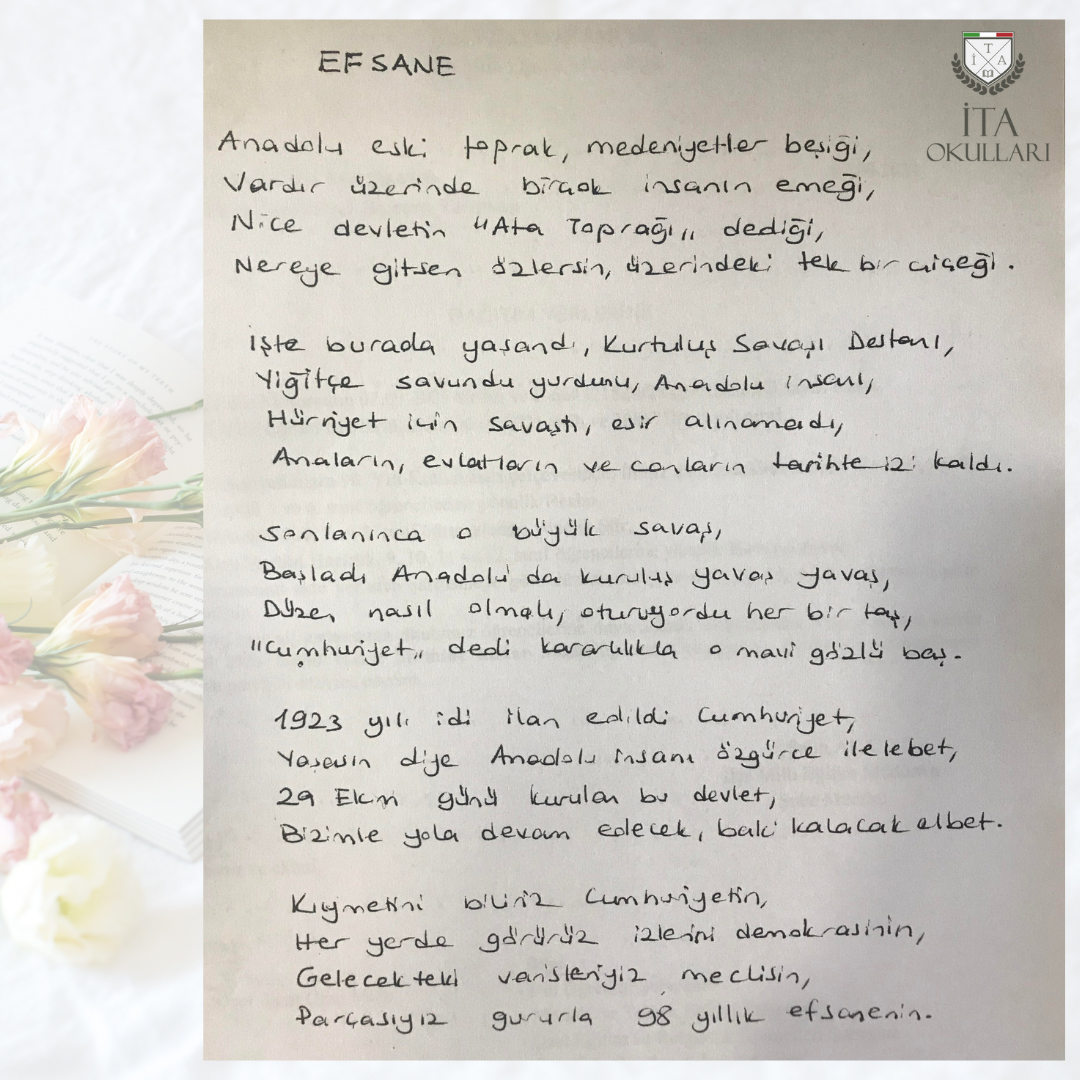 EFSANE
İTA
OKULLARI
Anadolu eski toprak, medeniyetler beşiği,
Vardır üzerinde birçok insanın emeği,
Nice devletin "Ata Toprağı" dediği,
Nereye gitsen özlersin, üzerindeki tek bir çiçeği.
İşte burada yaşandı, Kurtuluş Savaşı Destanı,
Yiğitçe savundu yurdunu, Anadolu insanı,
Hürriyet için savaştı, esir alınamadı,
Anaların, evlatların ve canların tarihte izi kaldı.
Sonlanınca o büyük savaş,
Başladı Anadolu'da kuruluş yavaş yavaş,
Düzen nasıl olmalı, oturuyordu her bir taş,
"Cumhuriyet" dedi kararlılıkla o mavi gözlü baş.
1923 yılı idi ilan edildi Cumhuriyet,
Yaşasın diye Anadolu insanı özgürce ilelebet,
29 Ekim günü kurulan bu devlet,
Bizimle yola devam edecek, baki kalacak elbet.
Kıymetini biliriz Cumhuriyetin,
Her yerde görürüz izlerini demokrasinin,
Gelecekteki varisleriyiz meclisin,
Parçasıyız gururla 98 yıllık efsanenin.